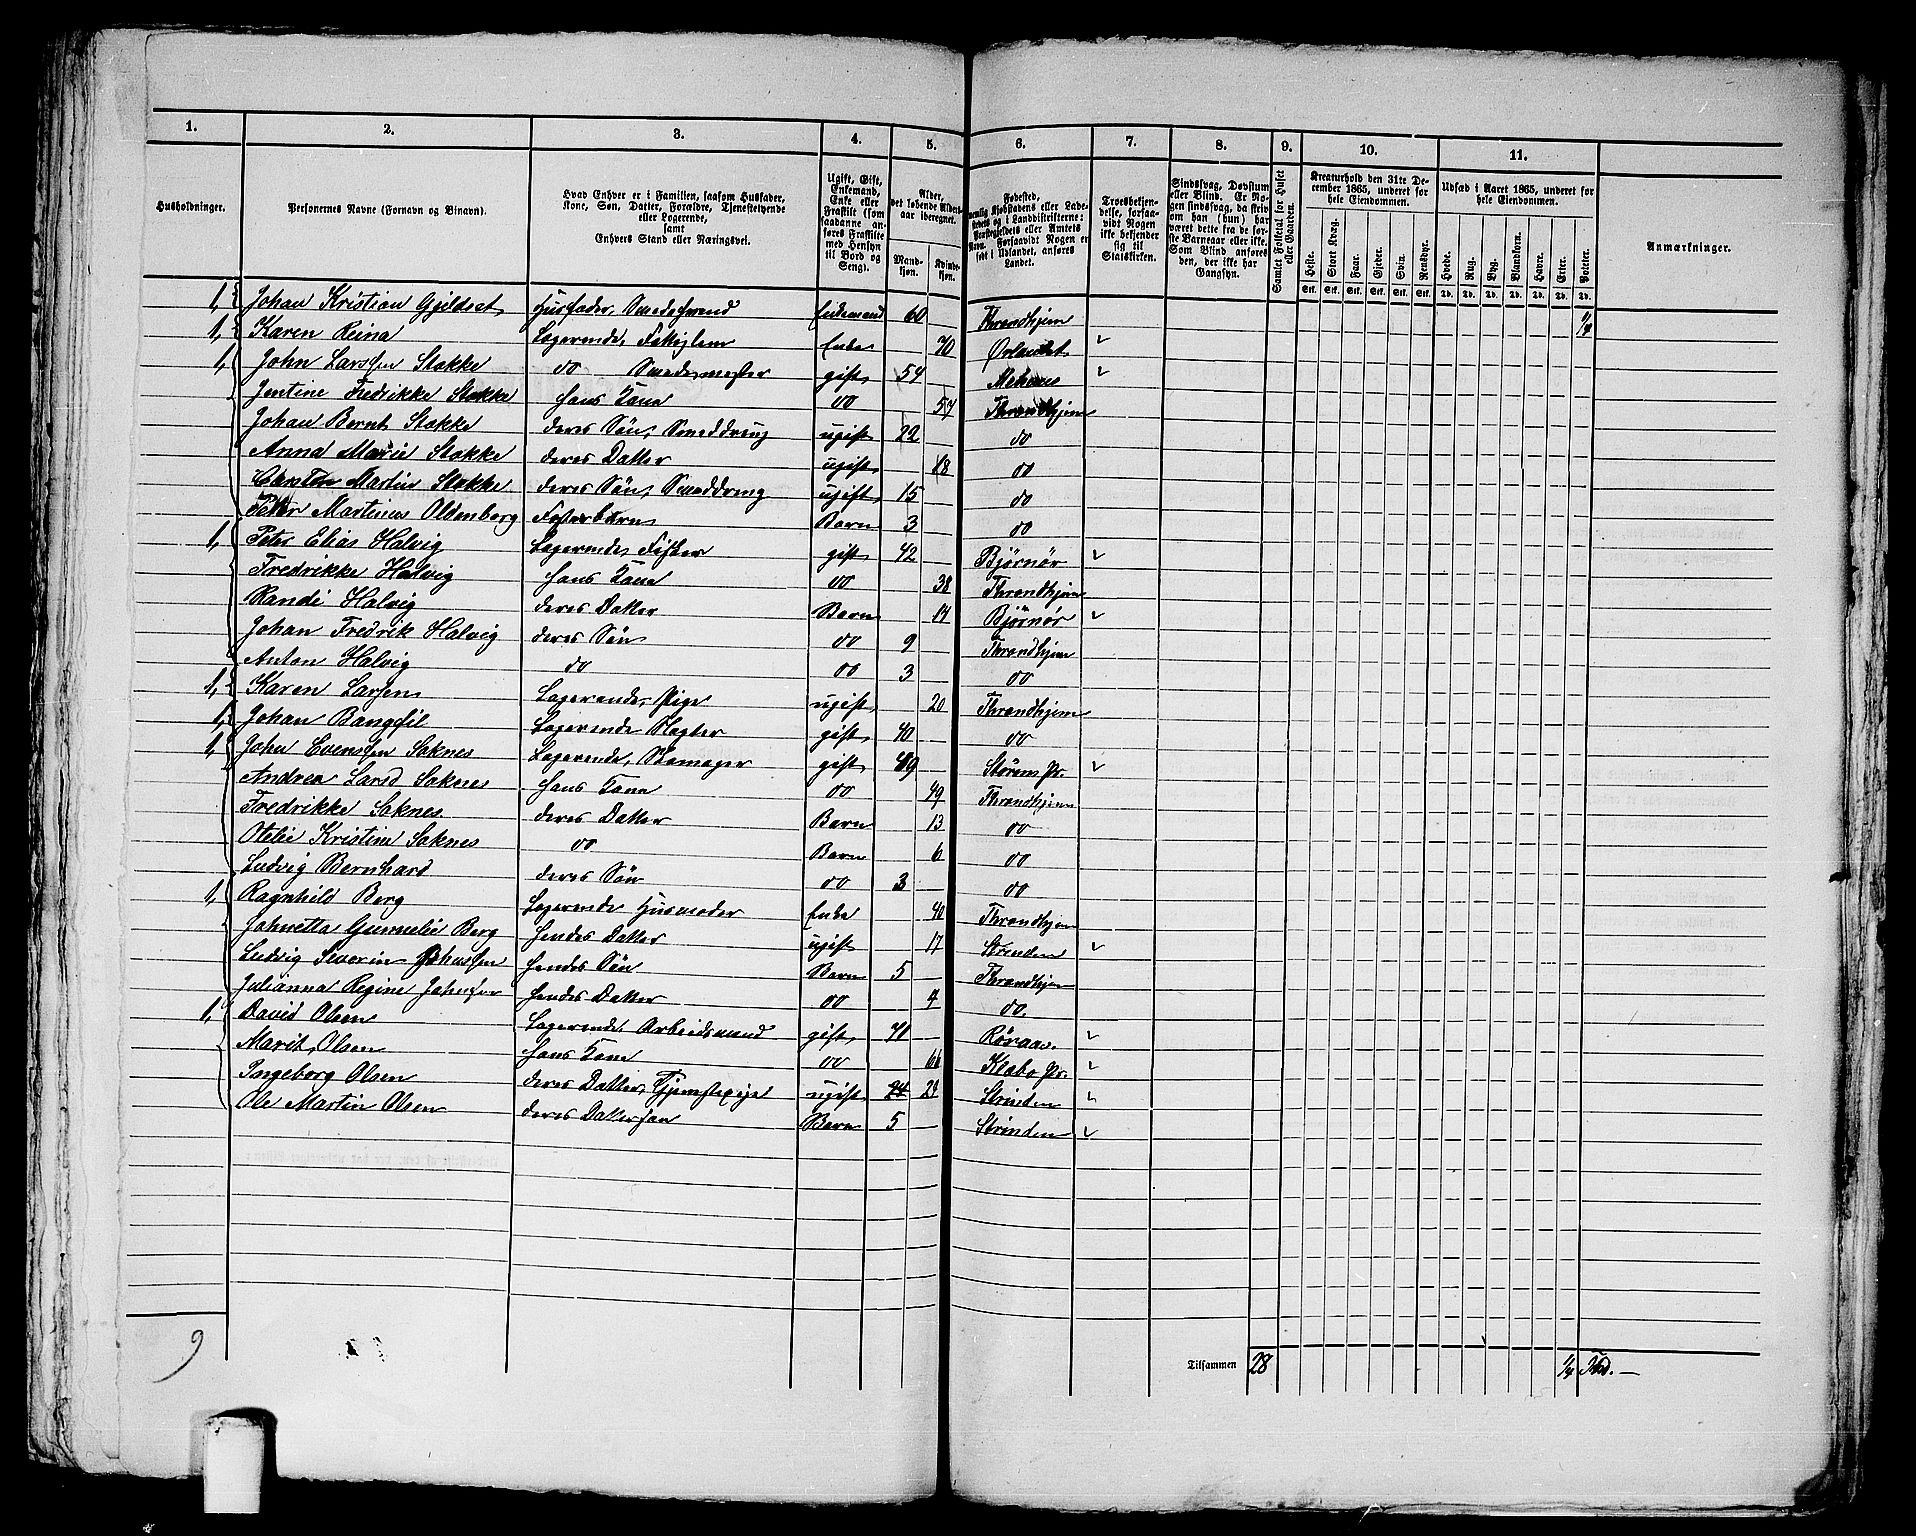 1. 2. 3. 4. 5. 6. 7. 8. 9. 10. 11.
Husholdninger.
Personernes Navne (Fornavn og Binavn).
Hvad Enhver er i Familien, saasom Husfader, Kone, Søn, Datter, Forældre, Tjenestetyende eller Logerende, samt Enhvers Stand eller Næringsvei.
Ugift, Gift, Enkemand, Enke eller Fraskilt (som saadanne anføres Fraskilte med Hensyn til Bord og Seng).
Alder, det løbende Alders-aar iberegnet.
Mandkjøn. Kvindekjøn.
Fødested,
Troesbekjendelse, forsaavidt Nogen ikke bekjender sig til Statskirken.
Sindssvag, Døvstum eller Blind. Er Nogen sindssvag, da skrives om han (hun) har været dette fra de første Barneaar eller ikke. Som Blind anføres den, der ikke har Gangsyn.
Samlet Folketal for Huset eller Gaarden.
Kreaturhold den 31te December 1865, underet for hele Eiendommen.
Heste. Stort Kvæg. Faar. Gjeder. Svin. Rensdyr.
Udsæd i Aaret 1865, underet for hele Eiendommen.
Hvede. Rug. Byg. Blandkorn. Havre. Erter. Poteter.
Anmærkninger.
Stk. Stk. Stk. Stk. Stk. Stk. Td. Td. Td. Td. Td. Td. Td.
1, Johan Kristian Gjeldset Husfader, Smedesvend Enkemand 60 Throndhjem 1/4
1, Karen Reina Logerende, Enke 70 Ørlandet
1, John Larssen Stokke do Smedemester gift 54 Mehuus
Jentine Fredrikke Stokke hans Kone do 57 Throndhjem
Johan Bernt Stokke deres Søn, Smeddreng ugift 22 do
Anna Marie Stokke deres Datter ugift 18 do
Carsten Martin Stokke deres Søn, Smeddreng ugift 15 do
Peter Martinus Oldenborg Fosterbarn Barn 3 do
1, Peter Elias Halvig Logerende, Fisker gift 42 Bjørnør
Fredrikke Halvig hans Kone do 38 Throndhjem
Randi Halvig deres Datter Barn 14 Bjørnør
Johan Fredrik Halvig deres Søn do 9 Throndhjem
Anton Halvig do do 3 do
1, Karen Larsen Logerende, Pige ugift 20 Throndhjem
1, Johan Bangfil Logerende Slagter gift 40 do
1, John Evensen Soknes Logerende, Skomager gift 49 Støren Pr.
Andrea Larsd Soknes hans Kone do 49 Throndhjem
Fredrikke Soknes deres Datter Barn 13 do
Otelie Kristine Soknes do Barn 6 do
Ludvig Bernhard deres Søn do 3 do
1, Ragnhild Berg Logerende Husmoder Enke 40 Throndhjem
Johnetta Gunnelie Berg hendes Datter ugift 17 Strinden
Ludvig Severin Johnssen hendes Søn Barn 5 Throndhjem
Julianna Regine Johnsen hendes Datter do 4 do.
1, David Olsen Logerende Arbeidsmand gift 70 Røraas.
Marit Olsen hans Kone do 66 Klæbo Pr.
Ingeborg Olsen deres Datter, Tjenestepige ugift 24 24 Strinden
Ole Martin Olsen deres Dattersøn Barn 5 Strinden
9
Tilsammen 28 1/4 Td.